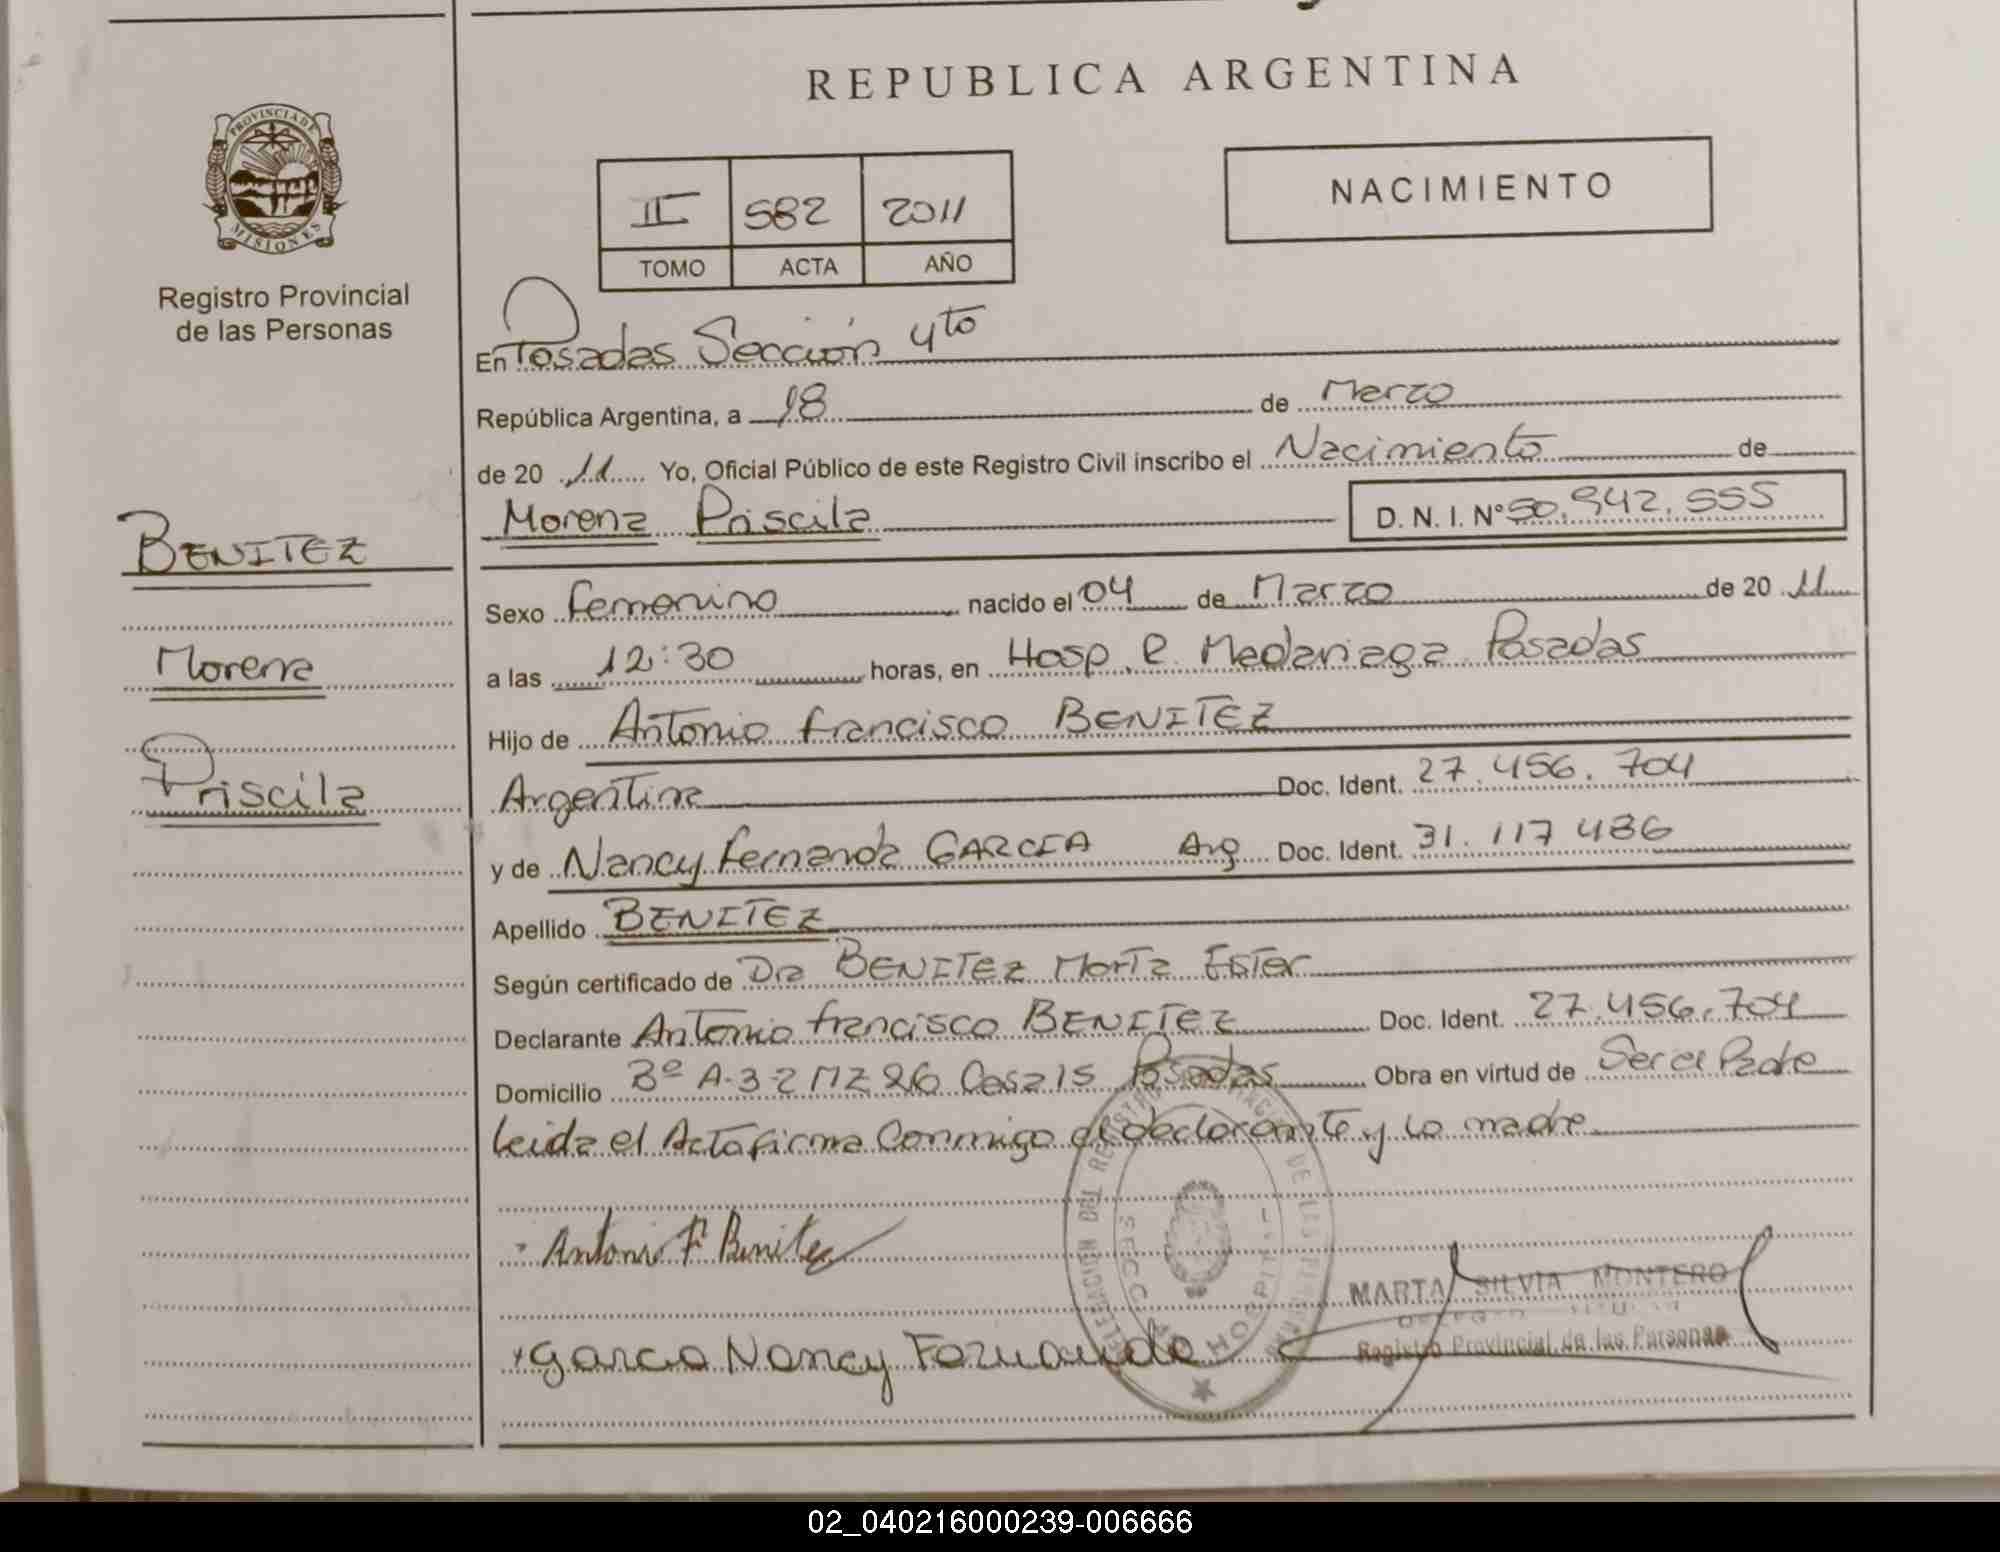 REPUBLICA ARGENTINA
PROVINCIA DE
MISIONES
Registro Provincial
de las Personas
II 582 2011
TOMO ACTA AÑO
NACIMIENTO
En Posadas Sección 4to
República Argentina, a 18 de Marzo
de 20 11 Yo, Oficial Público de este Registro Civil inscribo el Nacimiento de
Morena Priscila D. N. I. N° 50.942.555
BENITEZ
Morena
Priscila
Sexo Femenino nacido el 04 de Marzo de 20 11
a las 12:30 horas, en Hosp. R. Madariaga Posadas
Hijo de Antonio Francisco BENITEZ
Argentina Doc. Ident. 27.456.704
y de Nancy Fernanda GARCIA Arg Doc. Ident. 31.117 486
Apellido BENITEZ
Según certificado de Dra BENITEZ Marta Ester
Declarante Antonio Francisco BENITEZ Doc. Ident. 27.456.704
Domicilio Bº A-3-2 MZ 26 Casa 15 Posadas Obra en virtud de Ser el Padre
leida el Acta firma Conmigo el declarante y la madre
Antonio F Benitez
Garcia Nancy Fernanda
MARTA SILVIA MONTERO
Registro Provincial de las Personas
02_040216000239-006666